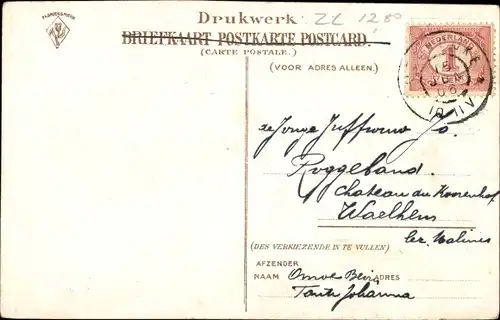 FABRIEKSMERK
Drukwerk ZL 12 50
BRIEFKAART POSTKARTE POSTCARD.
(CARTE POSTALE.)
(VOOR ADRES ALLEEN.)
NEDERLAND
JUN
06
10-11V
de Jonge Juffrouw
Roggeband.
Chateau du Hoorenhof
Waelhem
lez. Malines
(DES VERKIEZENDE IN TE VULLEN)
AFZENDER
NAAM ADRES
Tante Johanna